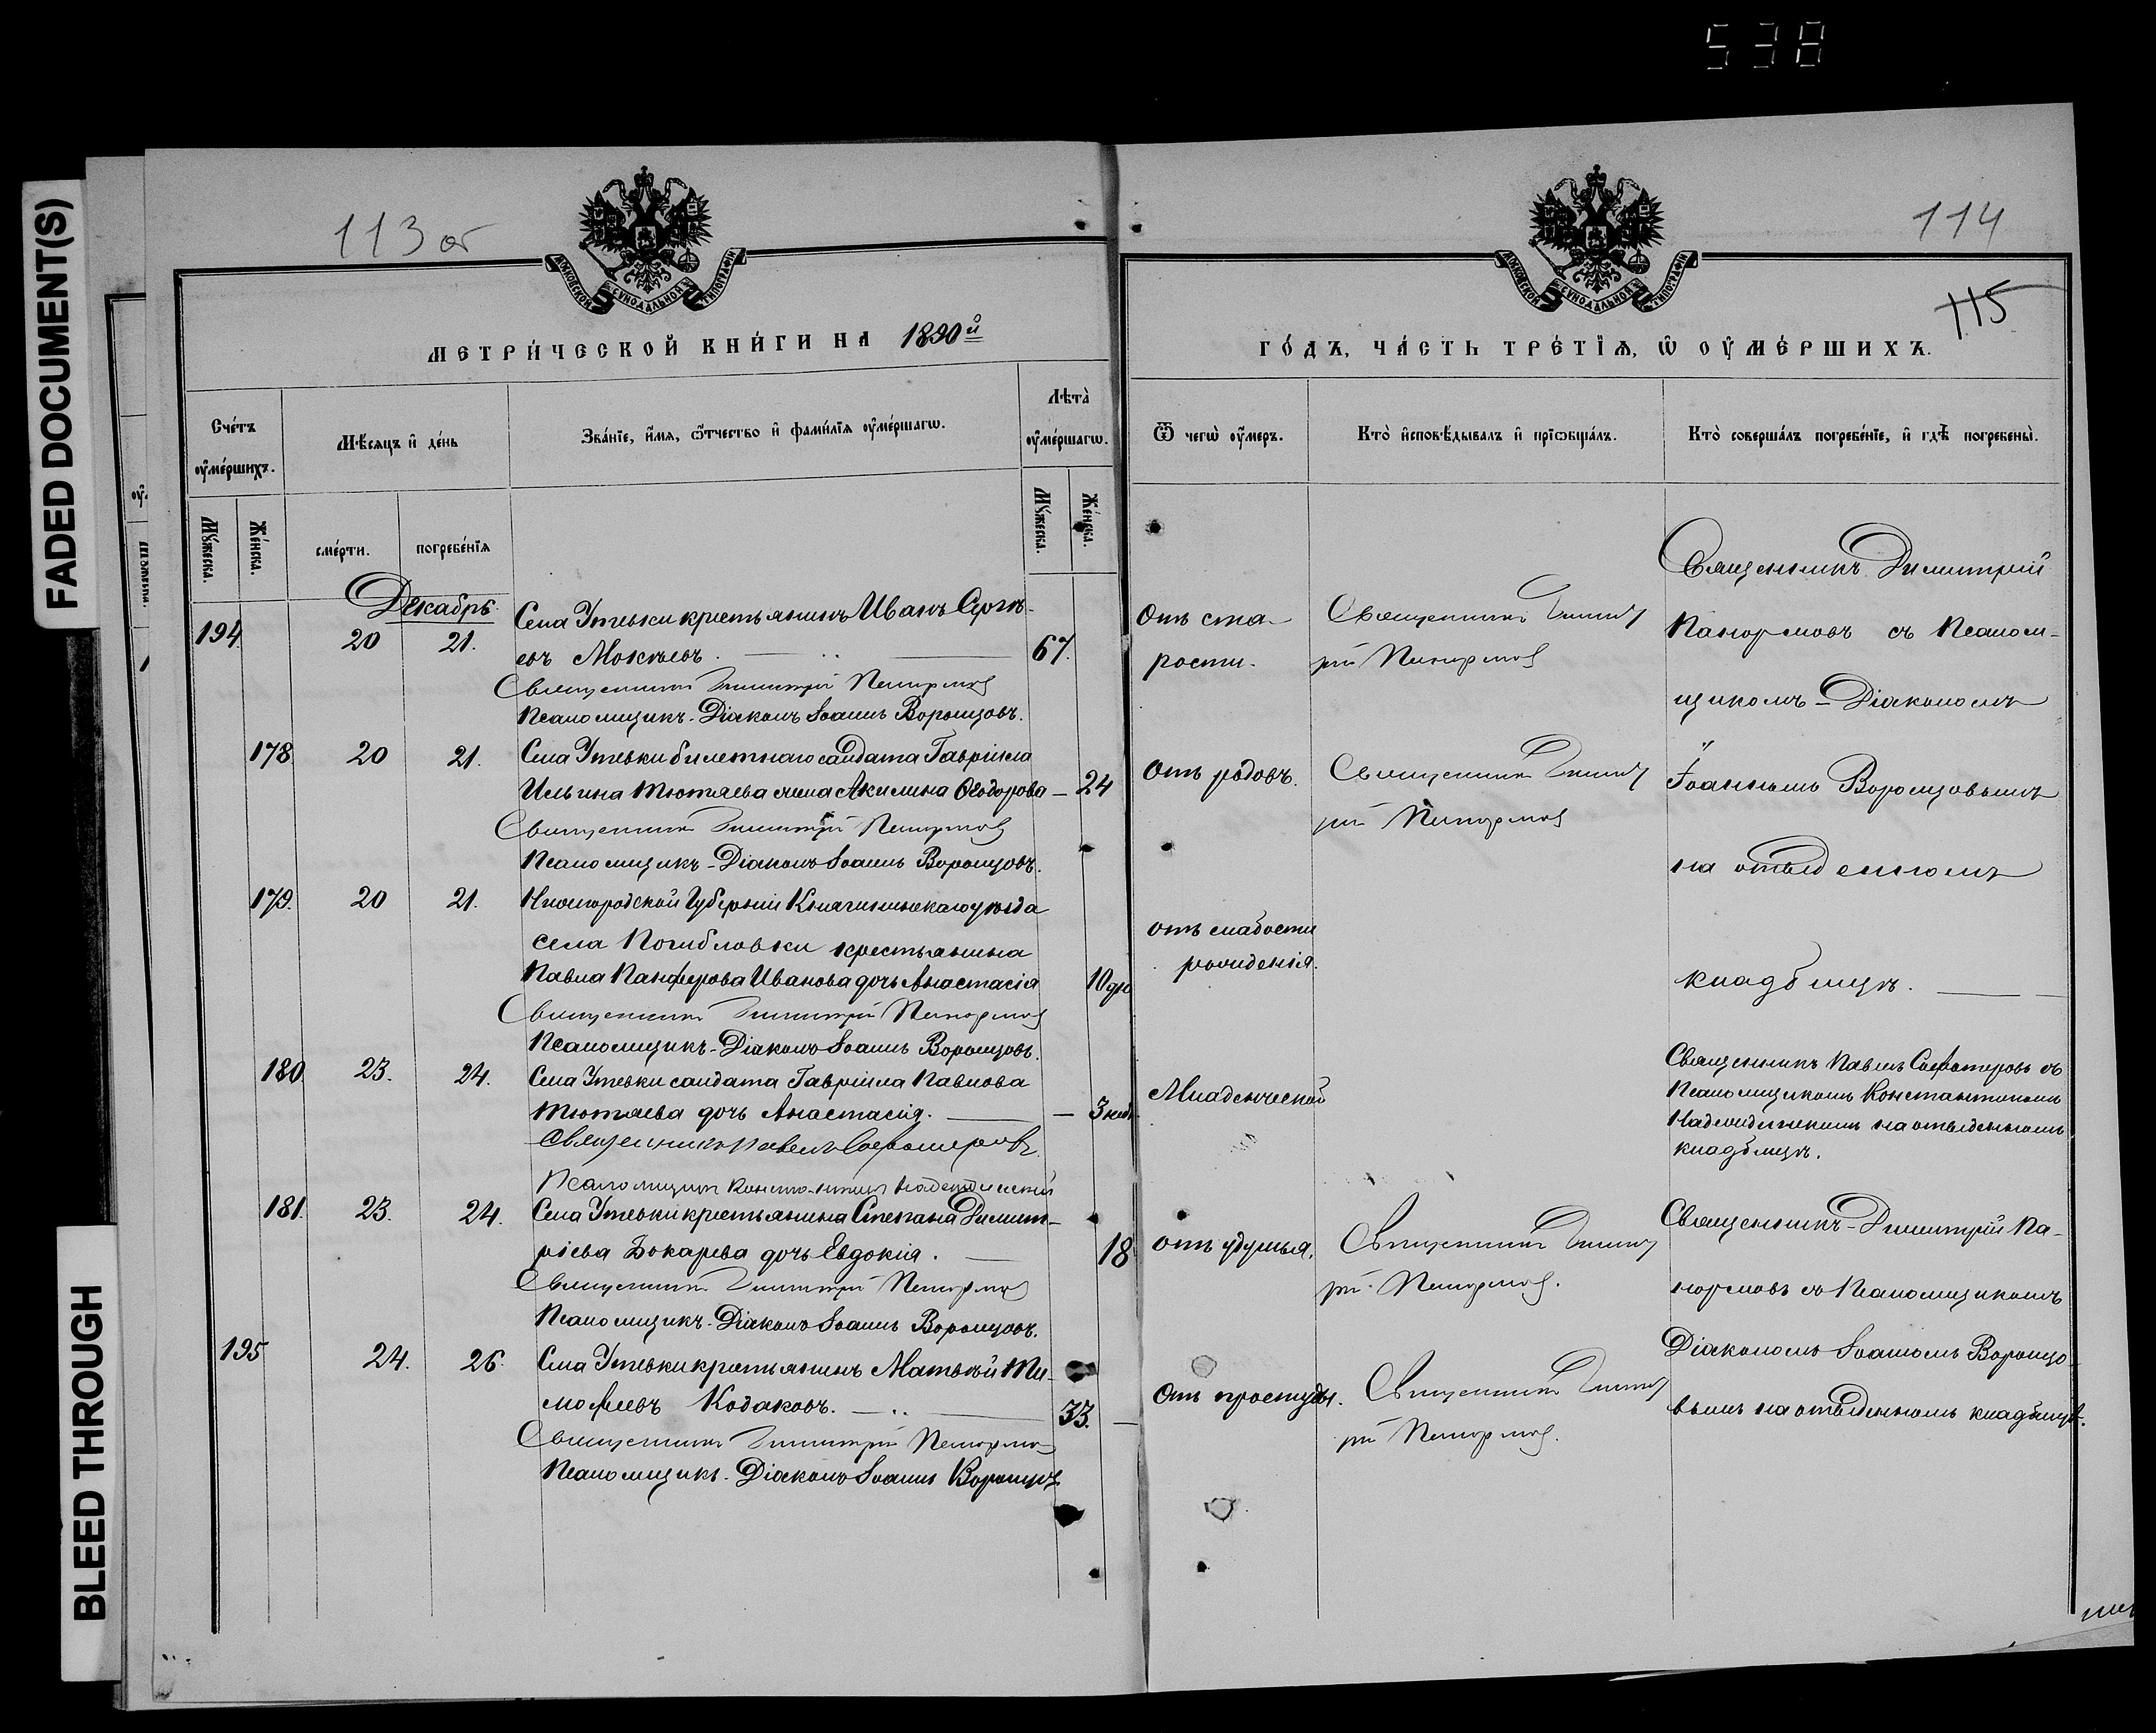 538
FADED DOCUMENT(S)
BLEED THROUGH
113 об
МЕТРИ́ЧЕСКОЙ КНИ́ГИ НА 1890й
Сче́тъ ᲂу҆ме́ршихъ.
Мѣ́сяцъ и҆ де́нь
Зва́нїе, и҆́мя, ѻ҆́тчество и҆ фами́лїя ᲂу҆ме́ршагѡ.
Лѣта̀ ᲂу҆ме́ршагѡ.
Мꙋ́жеска.
Же́нска.
сме́рти.
погребе́нїя
Мꙋ́жеска.
Же́нска.
Декабрь.
194 20 21. Села Утевки крестьянинъ Иванъ Сергѣ-
евъ Мокѣевъ. 67.
Священникъ Димитрій Панормовъ
Псаломщикъ-Діаконъ Іоаннъ Воронцовъ.
178 20 21. Села Утевки билетнаго салдата Гавріила
Ильина Тютяева жена Акилина Ѳеодорова — 24
Священникъ Димитрій Панормовъ
Псаломщикъ-Діаконъ Іоаннъ Воронцовъ.
179. 20 21. Нижегородской Губерніи Княгининскаго уѣзда
села Погибловки крестьянина
Павла Панферова Иванова дочь Анастасія 10 дн
Священникъ Димитрій Панормовъ
Псаломщикъ-Діаконъ Іоаннъ Воронцовъ.
180 23. 24. Села Утевки салдата Гавріила Павлова
Тютяева дочь Анастасія. — 3 нед.
Священникъ Павелъ
Псаломщикъ Константинъ Надеждинскій
181. 23. 24. Села Утевки крестьянина Степана Димит-
ріева Бокарева дочь Евдокія. 18
Священникъ Димитрій Панормовъ
Псаломщикъ-Діаконъ Іоаннъ Воронцовъ.
195 24. 26. Села Утевки крестьянинъ Матѳей Ти-
моѳеевъ Кодаковъ. 33. —
Священникъ Димитрій Панормовъ
Псаломщикъ-Діаконъ Іоаннъ Воронцовъ
114
115
ГО́ДЪ, ЧА́СТЬ ТРЕ́ТЇѦ, Ѡ҆ ОУ҆МЕ́РШИХЪ.
Ѿ чегѡ̀ ᲂу҆́меръ.
Кто̀ и҆сповѣ́дывалъ и҆ прїѡбща́лъ.
Кто̀ соверша́лъ погребе́нїе, и҆ гдѣ̀ погребены̀.
Отъ ста-
рости.
Священникъ Димит
рій Панормовъ
Священникъ Димитрій
Панормовъ съ Псалом-
щикомъ-Діакономъ
Іоанномъ Воронцовымъ
на отведенномъ
кладбищѣ.
Отъ родовъ.
Священникъ Димит
рій Панормовъ
отъ слабости
рожденія.
Младенческой
Священникъ Павелъ съ
Псаломщикомъ Константиномъ
Надеждинскимъ на отведенномъ
кладбищѣ.
отъ удушья.
Священникъ Димит
рій Панормовъ.
Священникъ-Димитрій Па-
нормовъ съ Псаломщикомъ
Діакономъ Іоанномъ Воронцо-
вымъ на отведенномъ кладбищѣ.
Отъ простуды.
Священникъ Димит
рій Панормовъ.